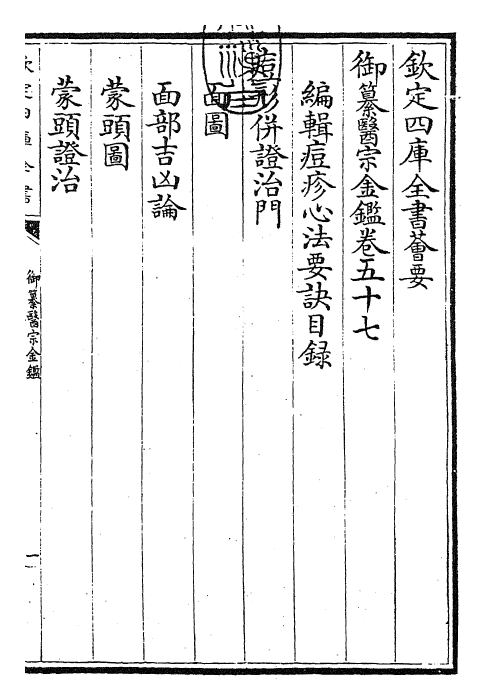 欽定四庫全書薈要
御纂醫宗金鑑卷五十七
編輯痘疹心法要訣目録
痘形併證治門
面圖
面部吉凶論
蒙頭圖
蒙頭證治
欽定四庫全書
御纂醫宗金鑑
一